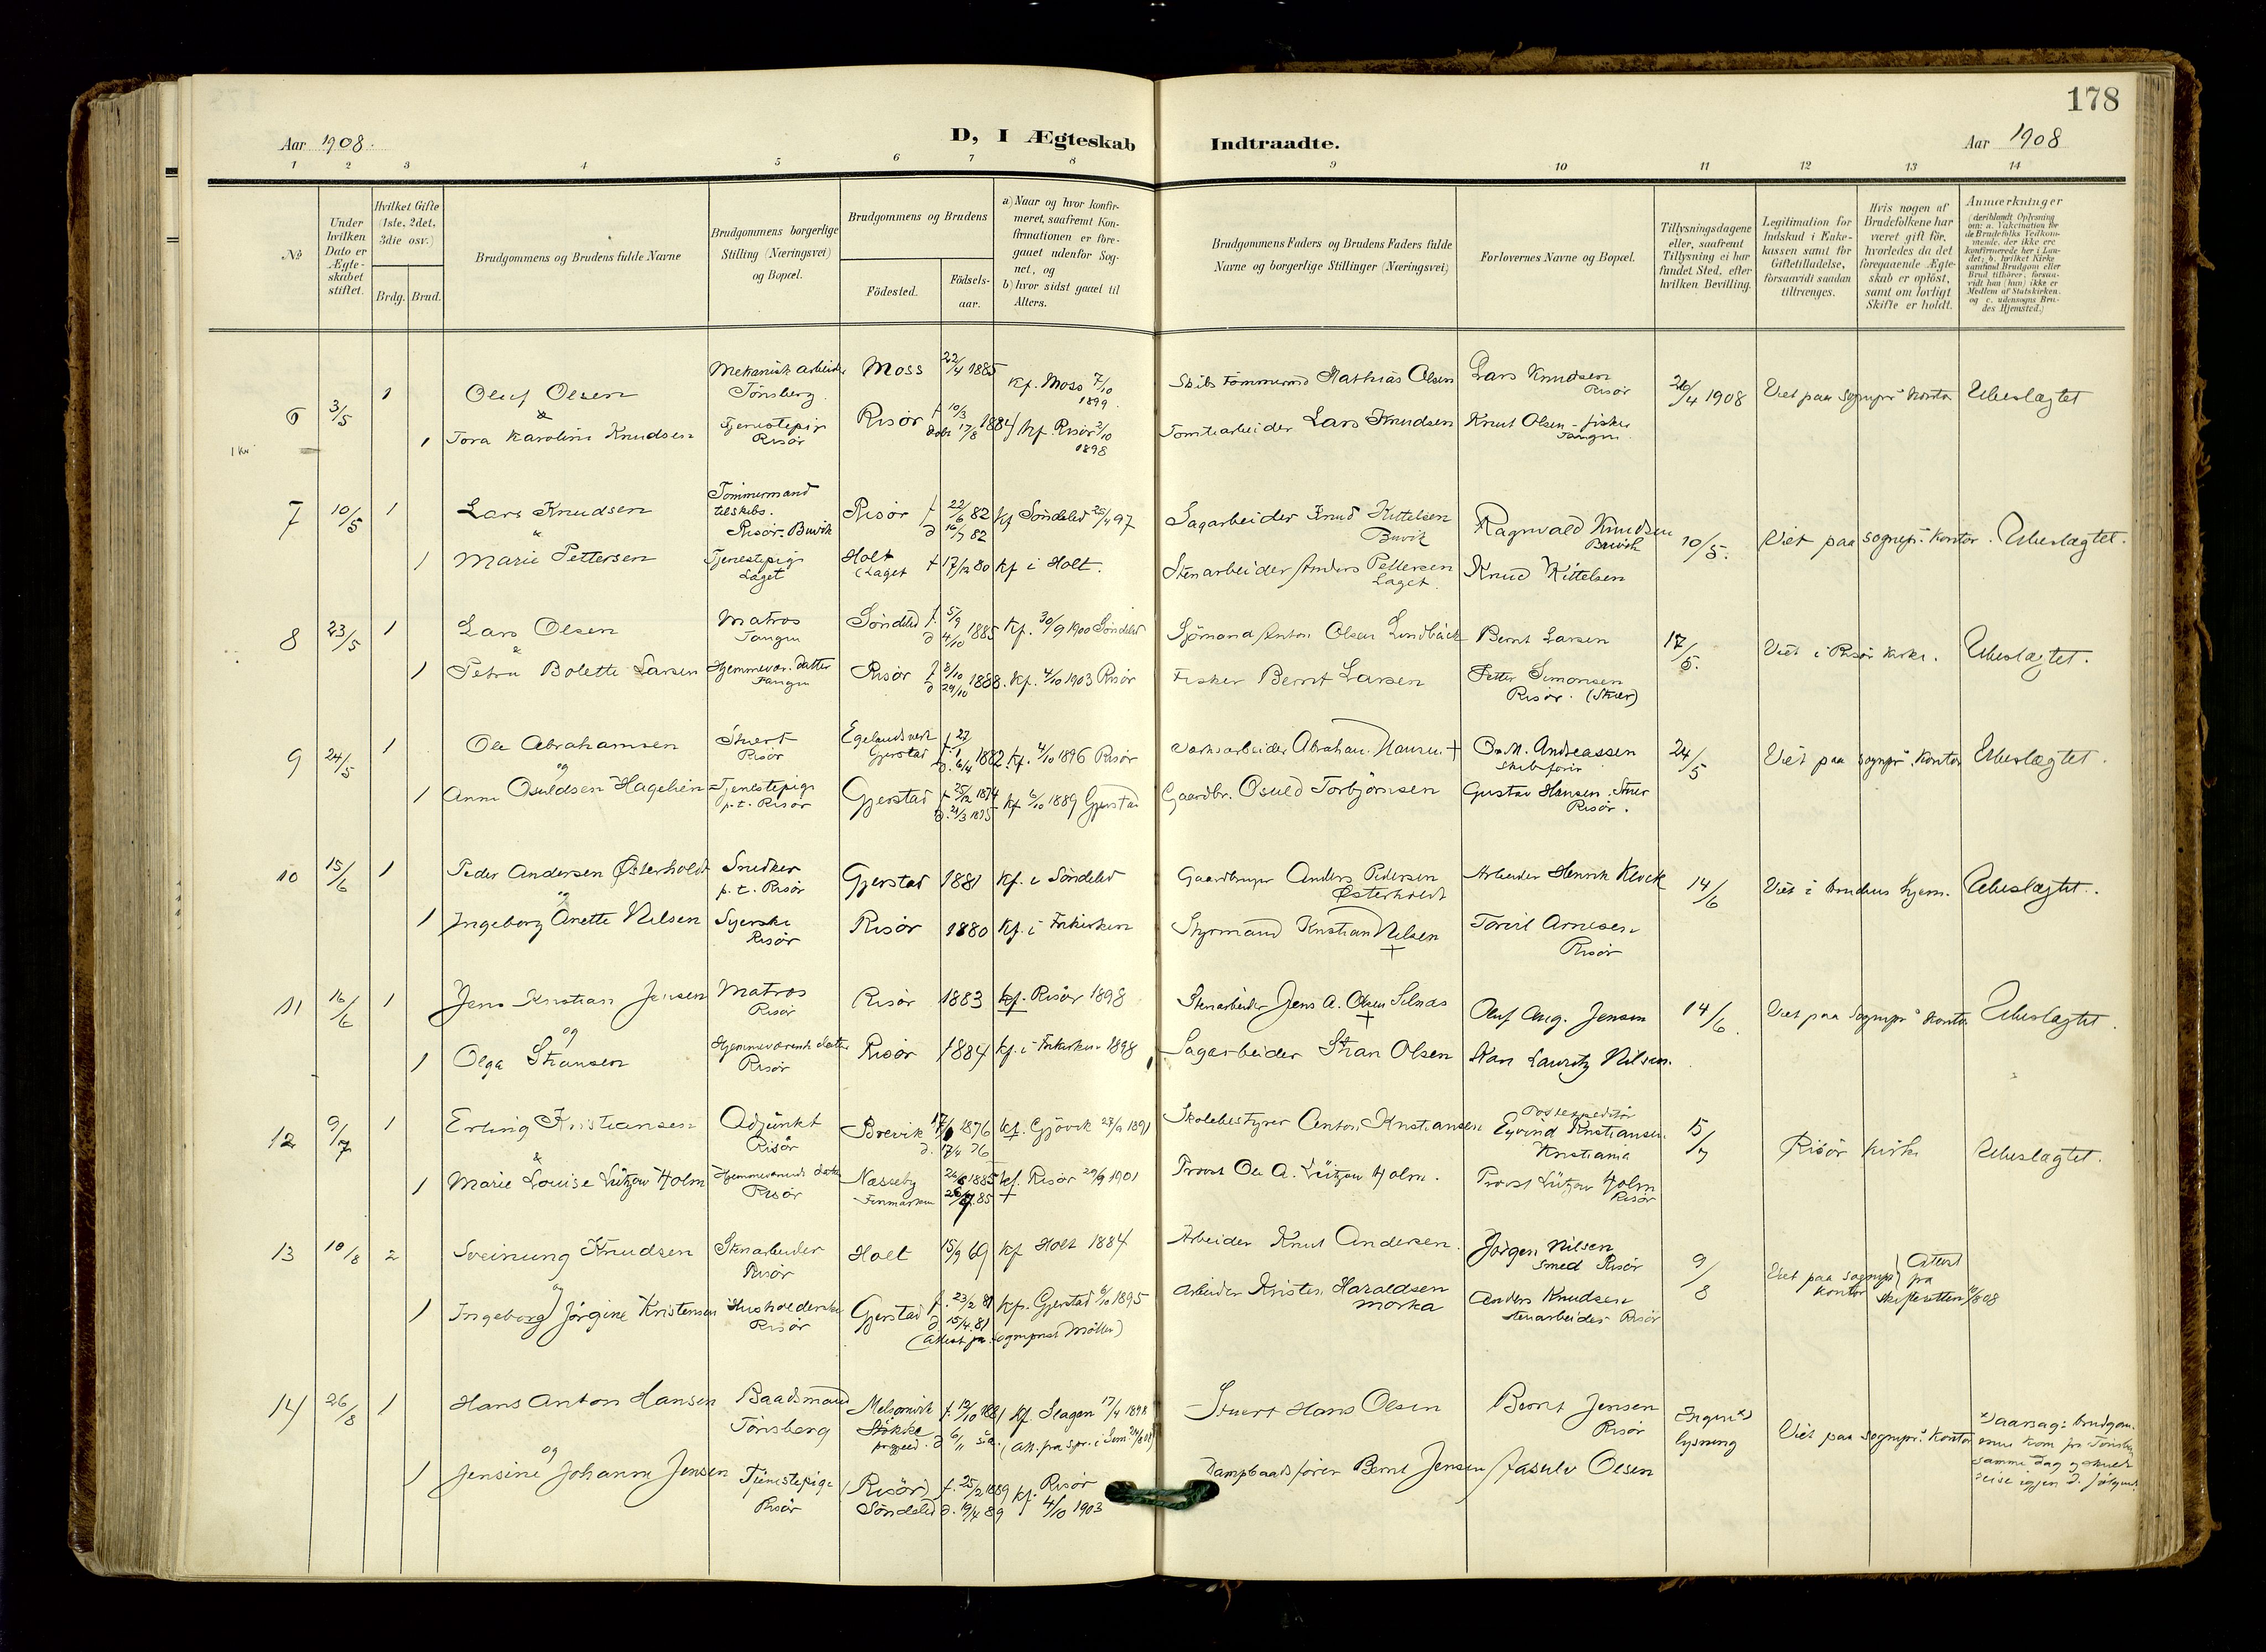 178
Aar 1908.
D, I Ægteskab Indtraadte.
Aar 1908
1 2 3 4 5 6 7 8 9 10 11 12 13 14
№
Under hvilken Dato er Ægteskabet stiftet.
Hvilket Gifte (1ste, 2det, 3die osv.)
Brdg. Brud.
Brudgommens og Brudens fulde Navne
Brudgommens borgerlige Stilling (Næringsvei) og Bopæl.
Brudgommens og Brudens
Födested.
Födsels-aar.
a) Naar og hvor konfirmeret, saafremt Konfirmationen er foregaaet udenfor Sognet, og
b) hvor sidst gaaet til Alters.
Brudgommens Faders og Brudens Faders fulde Navne og borgerlige Stillinger (Næringsvei)
Forlovernes Navne og Bopæl.
Tillysningsdagene eller, saafremt Tillysning ei har fundet Sted, efter hvilken Bevilling.
Legitimation for Indskud i Enkekassen samt for Giftetilladelse, forsaavidt saadan tiltrænges.
Hvis nogen af Brudefolkene har været gift för, hvorledes da det foregaaende Ægteskab er oplöst, samt om lovligt Skifte er holdt.
Anmærkninger
(deriblandt Oplysning om: a. Vakcination for de Brudefolks Vedkommende, der ikke ere konfirmerede her i Landet; b. hvilket Kirkesamfund Brudgom eller Brud tilhörer, forsaavidt han (hun) ikke er Medlem af Statskirken, og c. udensogns Brudes Hjemsted.)
6 3/5 1 Oluf Olsen Mekanisk arbeider Tönsberg. Moss 22/4 1885 Kf. Moss 7/10 1899. Skibstømmermd Mathias Olsen Lars Knudsen Risör 26/4 1908 Viet paa sognepr. kontor Ubeslægtet
&
1 Tora Karoline Knudsen Tjenestepige Risör Risör f 10/3 døbt 17/8 1884 Kf. Risör 2/10 1898 Tomtearbeider Lars Knudsen Knut Olsen - fisker Tangen.
1 Kr
7 10/5 1 Lars Knudsen Tömmermand tilskibs. Risör-Buvik Risör f 22/6 82 d 16/7 82 Kf Söndeled 25/4 97 Sagarbeider Knud Kittelsen Buvik Ragnvald Knudsen Buvik 10/5. Viet paa sognepr. kontor. Ubeslægtet.
&
1 Marie Pettersen Tjenestepige Laget Holt (Laget f 17/12 80 Kf i Holt. Stenarbeider Anders Pettersen Laget. Knud Kittelsen
8 23/5 1 Lars Olsen Matros Tangen Söndeled f. 5/9 d 4/10 1885 Kf. 30/9 1900 Söndeled Sjömand Anton Olsen Lindbäck Bernt Larsen 17/5. Viet i Risör kirke. Ubeslægtet.
&
1 Petra Bolette Larsen Hjemmevær. datter Tangen Risör f 8/10 d 29/10 1888. Kf. 4/10 1903 Risör Fisker Bernt Larsen Petter Simonsen Risör. (Stuer)
9 24/5 1 Ole Abrahamsen Stuert Risör Egelandsverk Gjerstad f. 27/1 d. 6/4 1882. Kf. 4/10 1896 Risör Værksarbeider Abraham Hansen + O. M. Andreassen skibsförer 24/5 Viet paa sognepr. kontor Ubeslægtet.
og
1 Anne Osuldsen Hagelien Tjenestepige p.t. Risör Gjerstad f 25/12 1874 d. 21/3 1875 Kf 6/10 1889 Gjerstad Gaardbr. Osuld Torbjörnsen Gustav Hansen. Stuer Risör.
10 15/6 1 Peder Andersen Østerholdt Snedker p. t. Risör Gjerstad 1881 Kf. i Söndeled Gaardbruger Anders Pedersen Østerholdt Arbeider Henrik Klock 14/6 Viet i brudens hjem. Ubeslægtet.
og
1 Ingeborg Anette Nilsen Syerske Risör Risör 1880 Kf. i Frikirken Styrmand Kristian Nilsen + Torvil Arnesen Risör
11 16/6 1 Jens Kristian Jensen Matros Risör Risör 1883 kf. Risör 1898 Stenarbeider Jens A. Olsen Selnæs + Oluf Aug. Jensen 14/6. Viet paa sognepr. kontor Ubeslægtet.
og
1 Olga Stiansen Hjemmeværende datter Risör Risör 1884 Kf. i Frikirken 1898 Sagarbeider Stian Olsen Karl Lauritz Nilsen.
12 9/7 1 Erling Kristiansen Adjunkt Risör Brevik 17/1 1876 d. 17/4 76 kf. Gjövik 27/9 1891 Skolebestyrer Anton Kristiansen Postexpeditör Eyvind Kristiansen Kristiania 5/7 Risör kirke Ubeslægtet.
&
1 Marie Louise Lützow Holm Hjemmeværende datter Risör Næsseby Finmarken 1885 kf. Risör 29/9 1901 Provst Ole A. Lützow Holm. Provst Lützow Holm Risör
13 10/8 2 Sveinung Knudsen Stenarbeider Risör Holt 15/9 69 Kf Holt 1884 Arbeider Knut Andersen. Jörgen Nilsen smed Risör 9/8 Viet paa sognepr. kontor (Attest fra skifteretten 10/8 08
og
1 Ingeborg Jörgine Kristensen Husholderske Risör Gjerstad f. 23/2 81 d 15/4 81 Kf. Gjerstad 6/10 1895 (Attest fra sogneprest Möller) Arbeider Kristen Haraldsen Morka Anders Knudsen stenarbeider Risör
14 26/8 1 Hans Anton Hansen Baadsmand Tönsberg Melsomvik Stokke prgjeld. f. 19/10 1881 d 6/11 s.a. Kf. Slagen 17/4 1898 (Att. fra spr. i Sem 24/8 08) Stuert Hans Olsen Bernt Jensen Risör Ingen x) lysning Viet paa sognepr. kontor x) aarsag: brudgommen kom fra Tönsberg samme dag og skulde reise igjen d. fölgende.
og
1 Jensine Johanne Jensen Tjenestepige Risör (Risör) Söndeled f. 25/2 1889 d. 19/4 89 kf. Risör 4/10 1903 Dampbaadsförer Bernt Jensen Aasulv Olsen